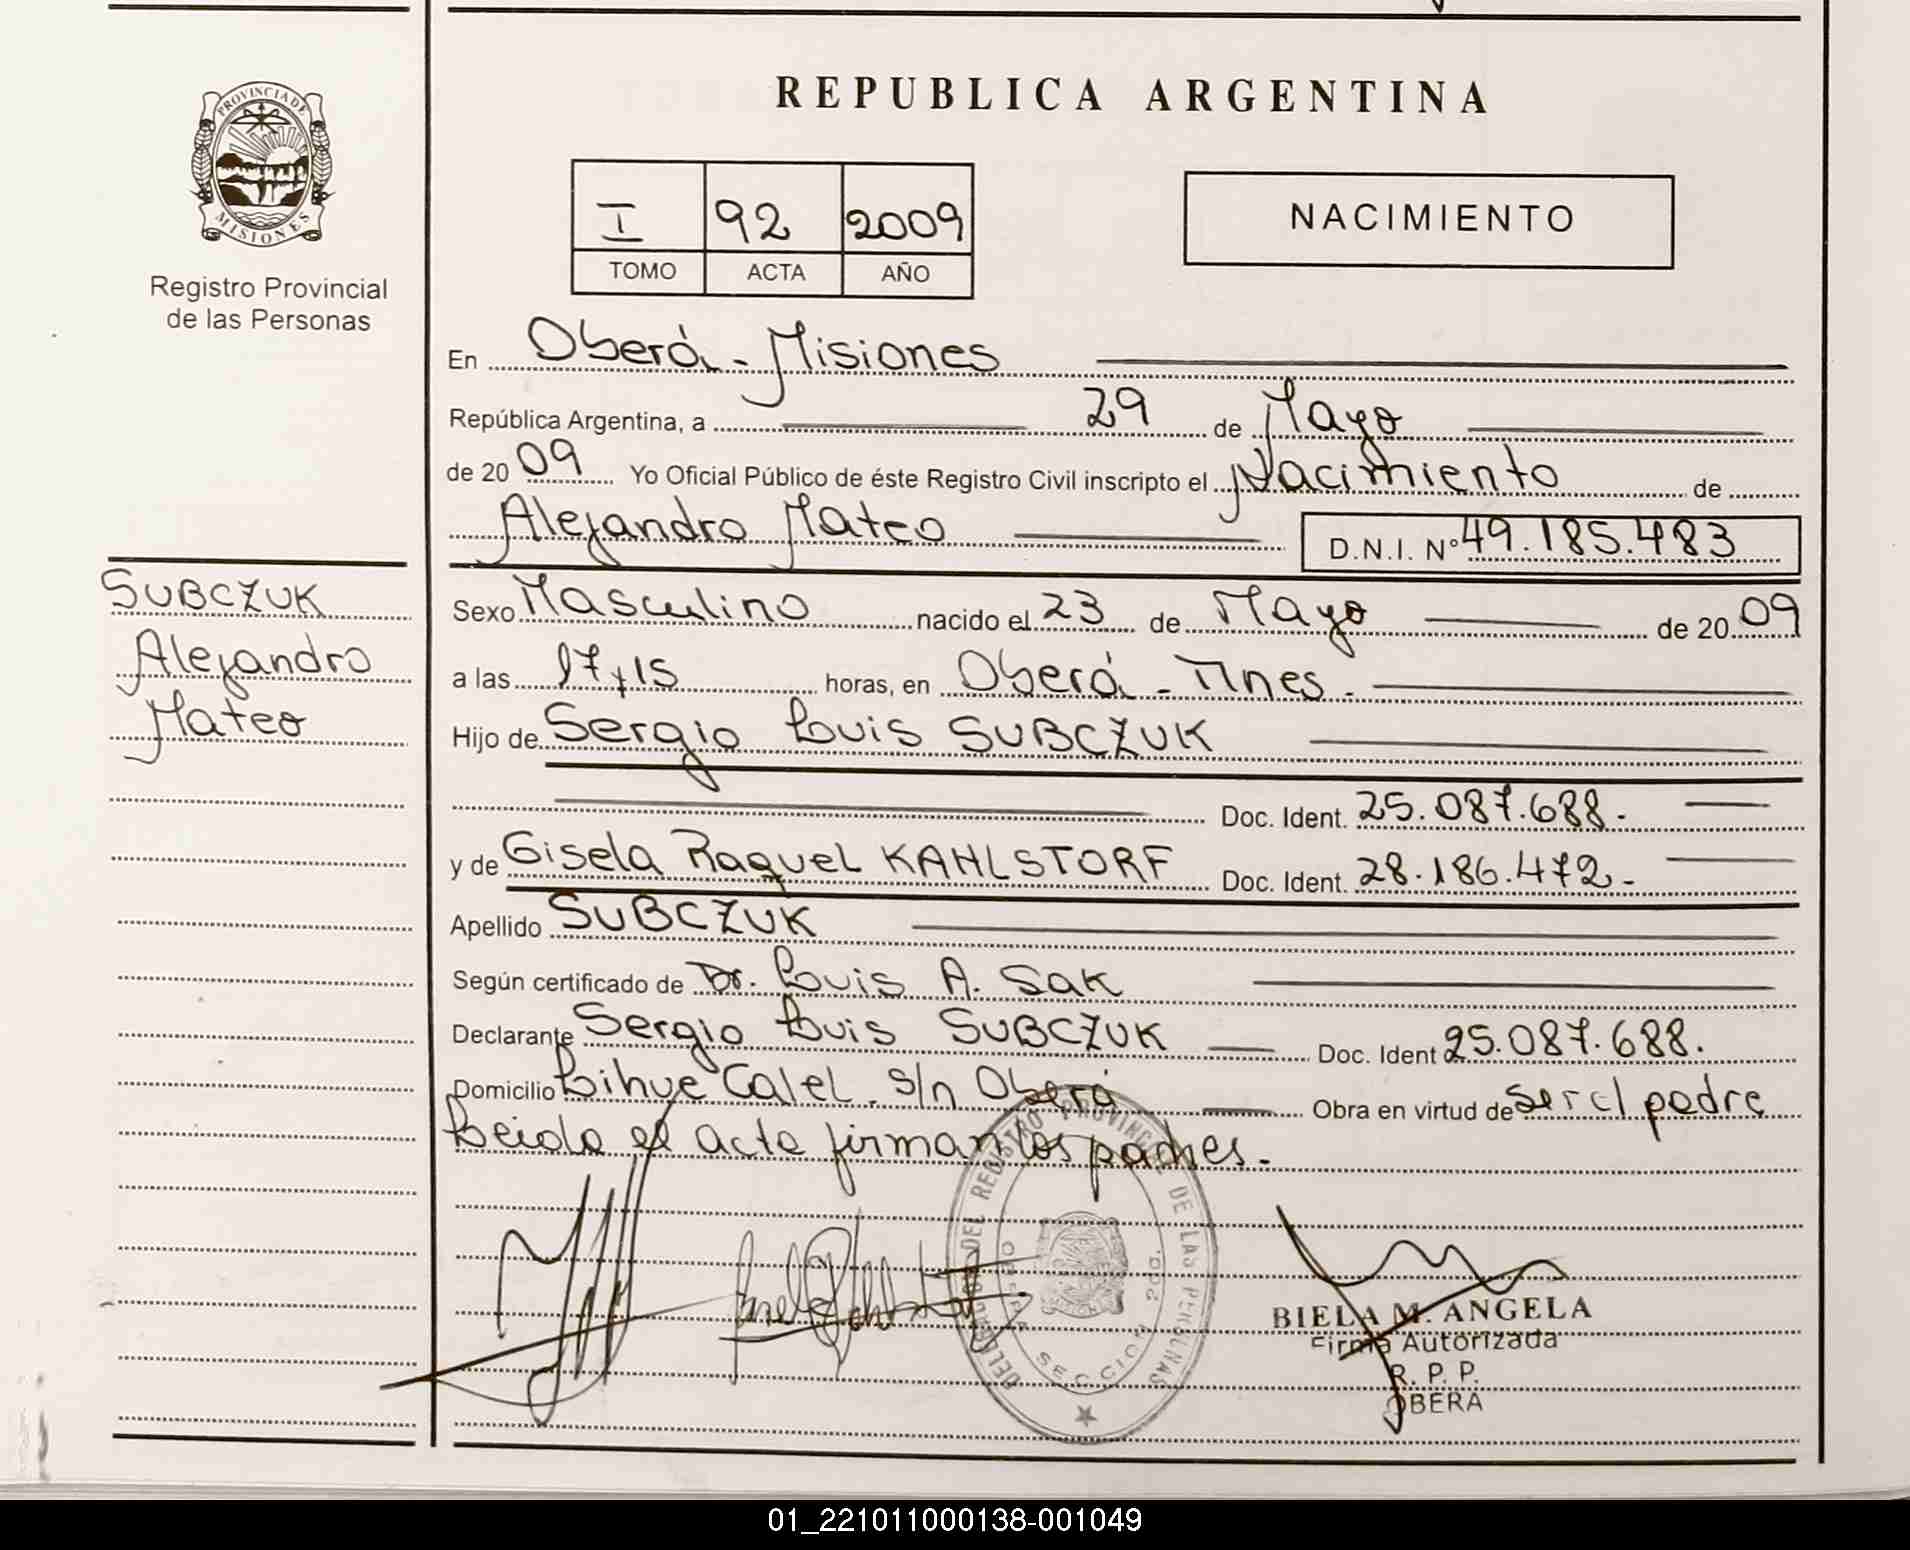 REPUBLICA ARGENTINA
PROVINCIA DE
MISIONES
Registro Provincial
de las Personas
I 92 2009
TOMO ACTA AÑO
NACIMIENTO
En Oberá - Misiones
República Argentina, a 29 de Mayo
de 20 09 Yo Oficial Público de éste Registro Civil inscripto el Nacimiento de
Alejandro Mateo D.N.I. N° 49.185.483
SUBCZUK
Alejandro
Mateo
Sexo Masculino nacido el 23 de Mayo de 20 09
a las 17,15 horas, en Oberá - Mnes -
Hijo de Sergio Luis SUBCZUK
Doc. Ident. 25.087.688.-
y de Gisela Raquel KAHLSTORF Doc. Ident. 28.186.472.-
Apellido SUBCZUK
Según certificado de Dr. Luis A. Sak
Declarante Sergio Luis SUBCZUK Doc. Ident 25.087.688.
Domicilio Lihue Calel. s/n Oberá Obra en virtud de ser el padre
Leida el acta firman los padres.-
DELEGADO DEL REGISTRO PROVINCIAL DE LAS PERSONAS
OBERA SECCION 2da.
BIELA M. ANGELA
Firma Autorizada
R. P. P.
OBERA
01_221011000138-001049